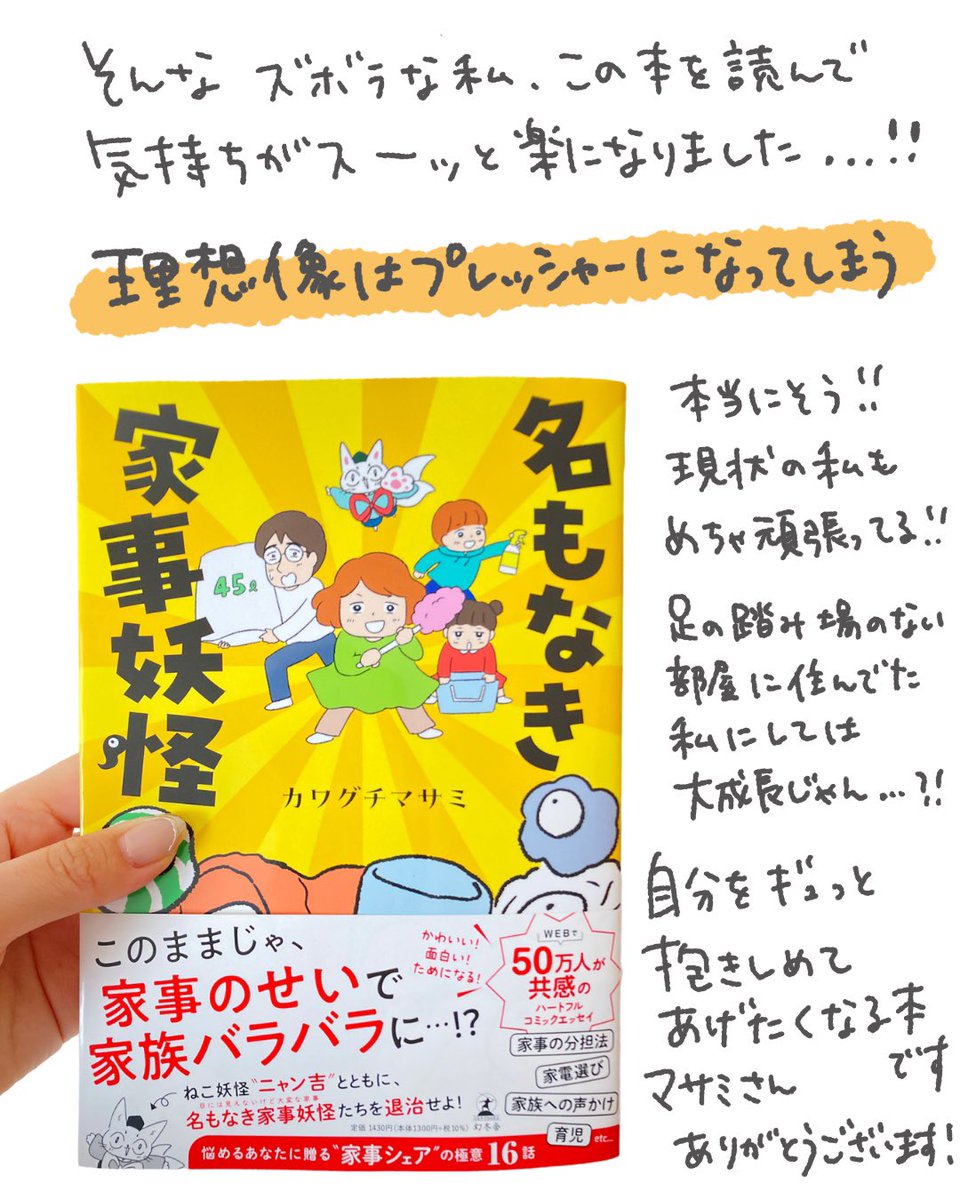 そんな ズボラな私、この本を読んで
気持ちがスーッと楽になりました...!!
理想像はプレッシャーになってしまう
本当にそう!!
現状の私も
めちゃ頑張ってる!!
足の踏み場のない
部屋に住んでた
私にしては
大成長じゃん...?!
自分をギュっと
抱きしめて
あげたくなる本
です
マサミさん
ありがとうございます!
名もなき
家事妖怪
45ℓ
カワグチマサミ
このままじゃ、
家事のせいで
家族バラバラに…!?
かわいい!
面白い!
ためになる!
WEBで
50万人が
共感の
ハートフル
コミックエッセイ
家事の分担法
家電選び
家族への声かけ
育児 etc...
ねこ妖怪“ニャン吉”とともに、
目には見えないけど大変な家事
名もなき家事妖怪たちを退治せよ!
定価 1430円(本体1300円+税10%) 幻冬舎
悩めるあなたに贈る“家事シェア”の極意16話